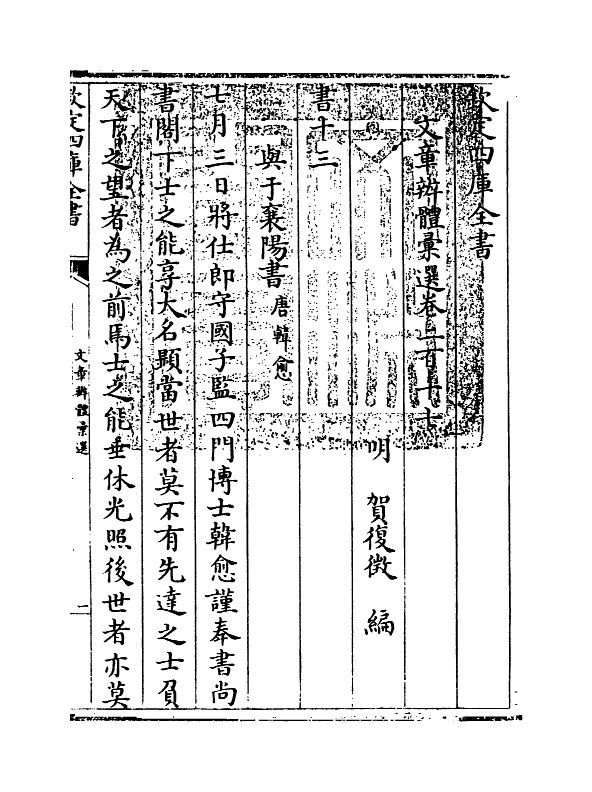 欽定四庫全書
文章辨體彙選卷二百十七
明 賀復徵 編
書十三
與于襄陽書 唐韓愈
七月三日將仕郎守國子監四門博士韓愈謹奉書尚
書閣下士之能享大名顯當世者莫不有先達之士負
天下之望者為之前焉士之能垂休光照後世者亦莫
欽定四庫全書
文章辨體彙選